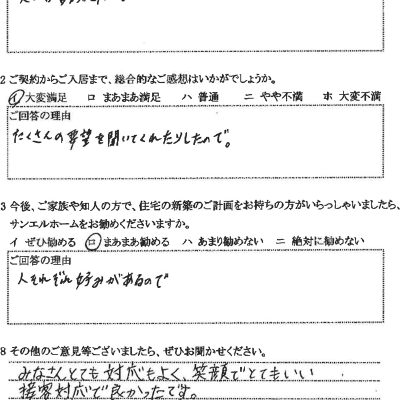 2 ご契約からご入居まで、総合的なご感想はいかがでしょうか。
イ 大変満足 ロ まあまあ満足 ハ 普通 ニ やや不満 ホ 大変不満
ご回答の理由
たくさんの要望を聞いてくれたりしたので。
3 今後、ご家族や知人の方で、住宅の新築のご計画をお持ちの方がいらっしゃいましたら、
サンエルホームをお勧めくださいますか。
イ ぜひ勧める ロ まあまあ勧める ハ あまり勧めない ニ 絶対に勧めない
ご回答の理由
人それぞれ好みがあるので
8 その他のご意見等ございましたら、ぜひお聞かせください。
みなさんとても対応もよく、笑顔でとてもいい
接客対応で良かったです。